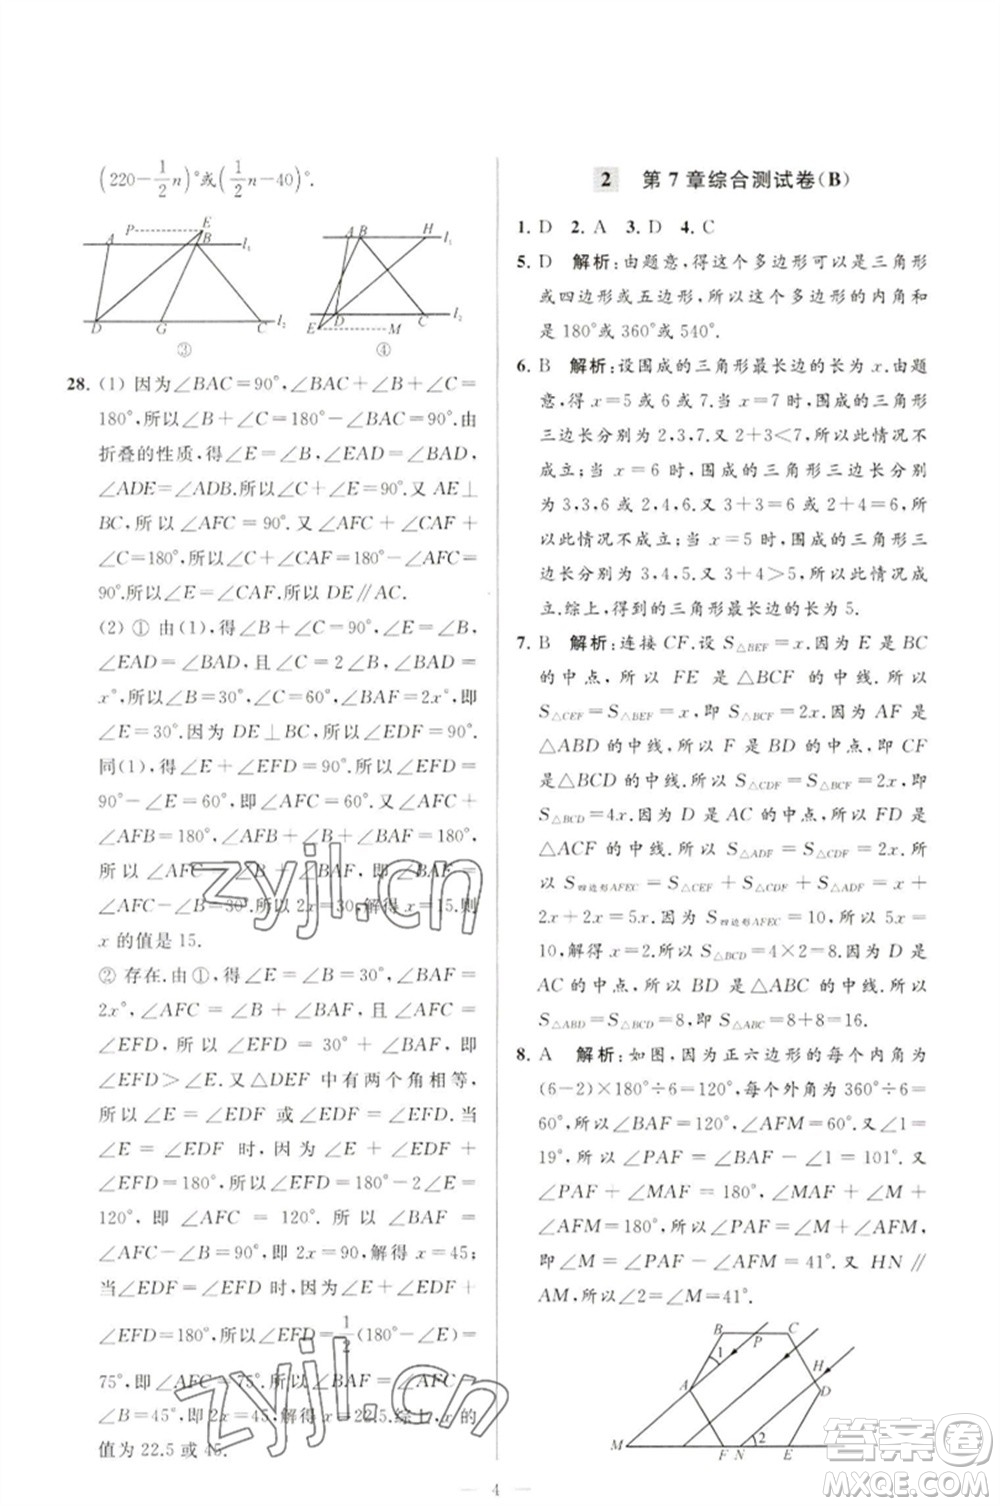 (220－1/2n)°或(1/2n－40)°.
P E
A B l₁
D G C l₂
③
A B H l₁
E D M C l₂
④
28. (1) 因为∠BAC＝90°,∠BAC＋∠B＋∠C＝
180°,所以∠B＋∠C＝180°－∠BAC＝90°.由
折叠的性质,得∠E＝∠B,∠EAD＝∠BAD,
∠ADE＝∠ADB.所以∠C＋∠E＝90°.又 AE⊥
BC,所以∠AFC＝90°.又∠AFC＋∠CAF＋
∠C＝180°,所以∠C＋∠CAF＝180°－∠AFC＝
90°.所以∠E＝∠CAF.所以 DE∥AC.
(2) ① 由(1),得∠B＋∠C＝90°,∠E＝∠B,
∠EAD＝∠BAD,且∠C－∠B＝30°,∠BAD＝
x°,所以∠B＝30°,∠C＝60°,∠BAF＝2x°,即
∠E＝30°.因为 DE⊥BC,所以∠EDF＝90°.
同(1),得∠E＋∠EFD＝90°.所以∠EFD＝
90°－∠E＝60°,即∠AFB＝60°.又∠EFD＋
∠AFB＝180°,∠AFB＋∠B＋∠BAF＝180°,
所以∠BAF＝180°－∠AFB－∠B＝∠EFD
－∠B＝30°.所以 2x＝30,解得 x＝15.则
x 的值是 15.
② 存在.由①,得∠E＝∠B＝30°,∠BAF＝
2x°,∠AFC＝∠B＋∠BAF,∠AFC＝
∠EFD,所以∠EFD＝30°＋∠BAF,即
∠EFD＞∠E.又△DEF 中有两个角相等,
所以∠E＝∠EDF 或∠EDF＝∠EFD.当
∠E＝∠EDF 时,因为∠E＋∠EDF＋
∠EFD＝180°,所以∠EFD＝180°－2∠E＝
120°,即∠AFC＝120°.所以∠BAF＝
∠AFC－∠B＝90°,即 2x＝90,解得 x＝45;
当∠EDF＝∠EFD 时,因为∠E＋∠EDF＋
∠EFD＝180°,所以∠EFD＝1/2(180°－∠E)＝
75°,即∠AFC＝75°.所以∠BAF＝∠AFC－
∠B＝45°,即 2x＝45,解得 x＝22.5.综上,x 的
值为 22.5 或 45.
2 第 7 章综合测试卷(B)
1. D 2. A 3. D 4. C
5. D 解析:由题意,得这个多边形可以是三角形
或四边形或五边形,所以这个多边形的内角和
是 180°或 360°或 540°.
6. B 解析:设围成的三角形最长边的长为 x.由题
意,得 x＝5 或 6 或 7.当 x＝7 时,围成的三角形
三边长分别为 2,3,7.又 2＋3＜7,所以此情况不
成立;当 x＝6 时,围成的三角形三边长分别
为 3,3,6 或 2,4,6.又 3＋3＝6 或 2＋4＝6,所
以此情况不成立;当 x＝5 时,围成的三角形三
边长分别为 3,4,5.又 3＋4＞5,所以此情况成
立.综上,得到的三角形最长边的长为 5.
7. B 解析:连接 CF.设 S△BEF＝x.因为 E 是 BC
的中点,所以 FE 是△BCF 的中线.所以
S△CEF＝S△BEF＝x,即 S△BCF＝2x.因为 AF 是
△ABD 的中线,所以 F 是 BD 的中点,即 CF
是△BCD 的中线.所以 S△CDF＝S△BCF＝2x,即
S△BCD＝4x.因为 D 是 AC 的中点,所以 FD 是
△ACF 的中线.所以 S△ADF＝S△CDF＝2x.所以
S四边形AFEC＝S△CEF＋S△CDF＋S△ADF＝x＋
2x＋2x＝5x.因为 S四边形AFEC＝10,所以 5x＝
10,解得 x＝2.所以 S△BCD＝4×2＝8.因为 D 是
AC 的中点,所以 BD 是△ABC 的中线.所以
S△ABD＝S△BCD＝8,即 S△ABC＝8＋8＝16.
8. A 解析:如图,因为正六边形的每个内角为
(6－2)×180°÷6＝120°,每个外角为 360°÷6＝
60°,所以∠BAF＝120°,∠AFM＝60°.又∠1＝
19°,所以∠PAF＝∠BAF－∠1＝101°.又
∠PAF＋∠MAF＝180°,∠MAF＋∠M＋
∠AFM＝180°,所以∠PAF＝∠M＋∠AFM,
即∠M＝∠PAF－∠AFM＝41°.又 HN∥
AM,所以∠2＝∠M＝41°.
B P C
1 H
A D
2
M F N E
zyjl.cn
zyjl.cn
答案圈
MXQE.COM
4